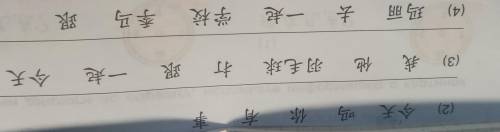 (2) 今天 吗 你 有 事
(3) 我 他 羽毛球 打 跟 一起 今天
(4) 玛丽 去 一起 学校 季马 跟